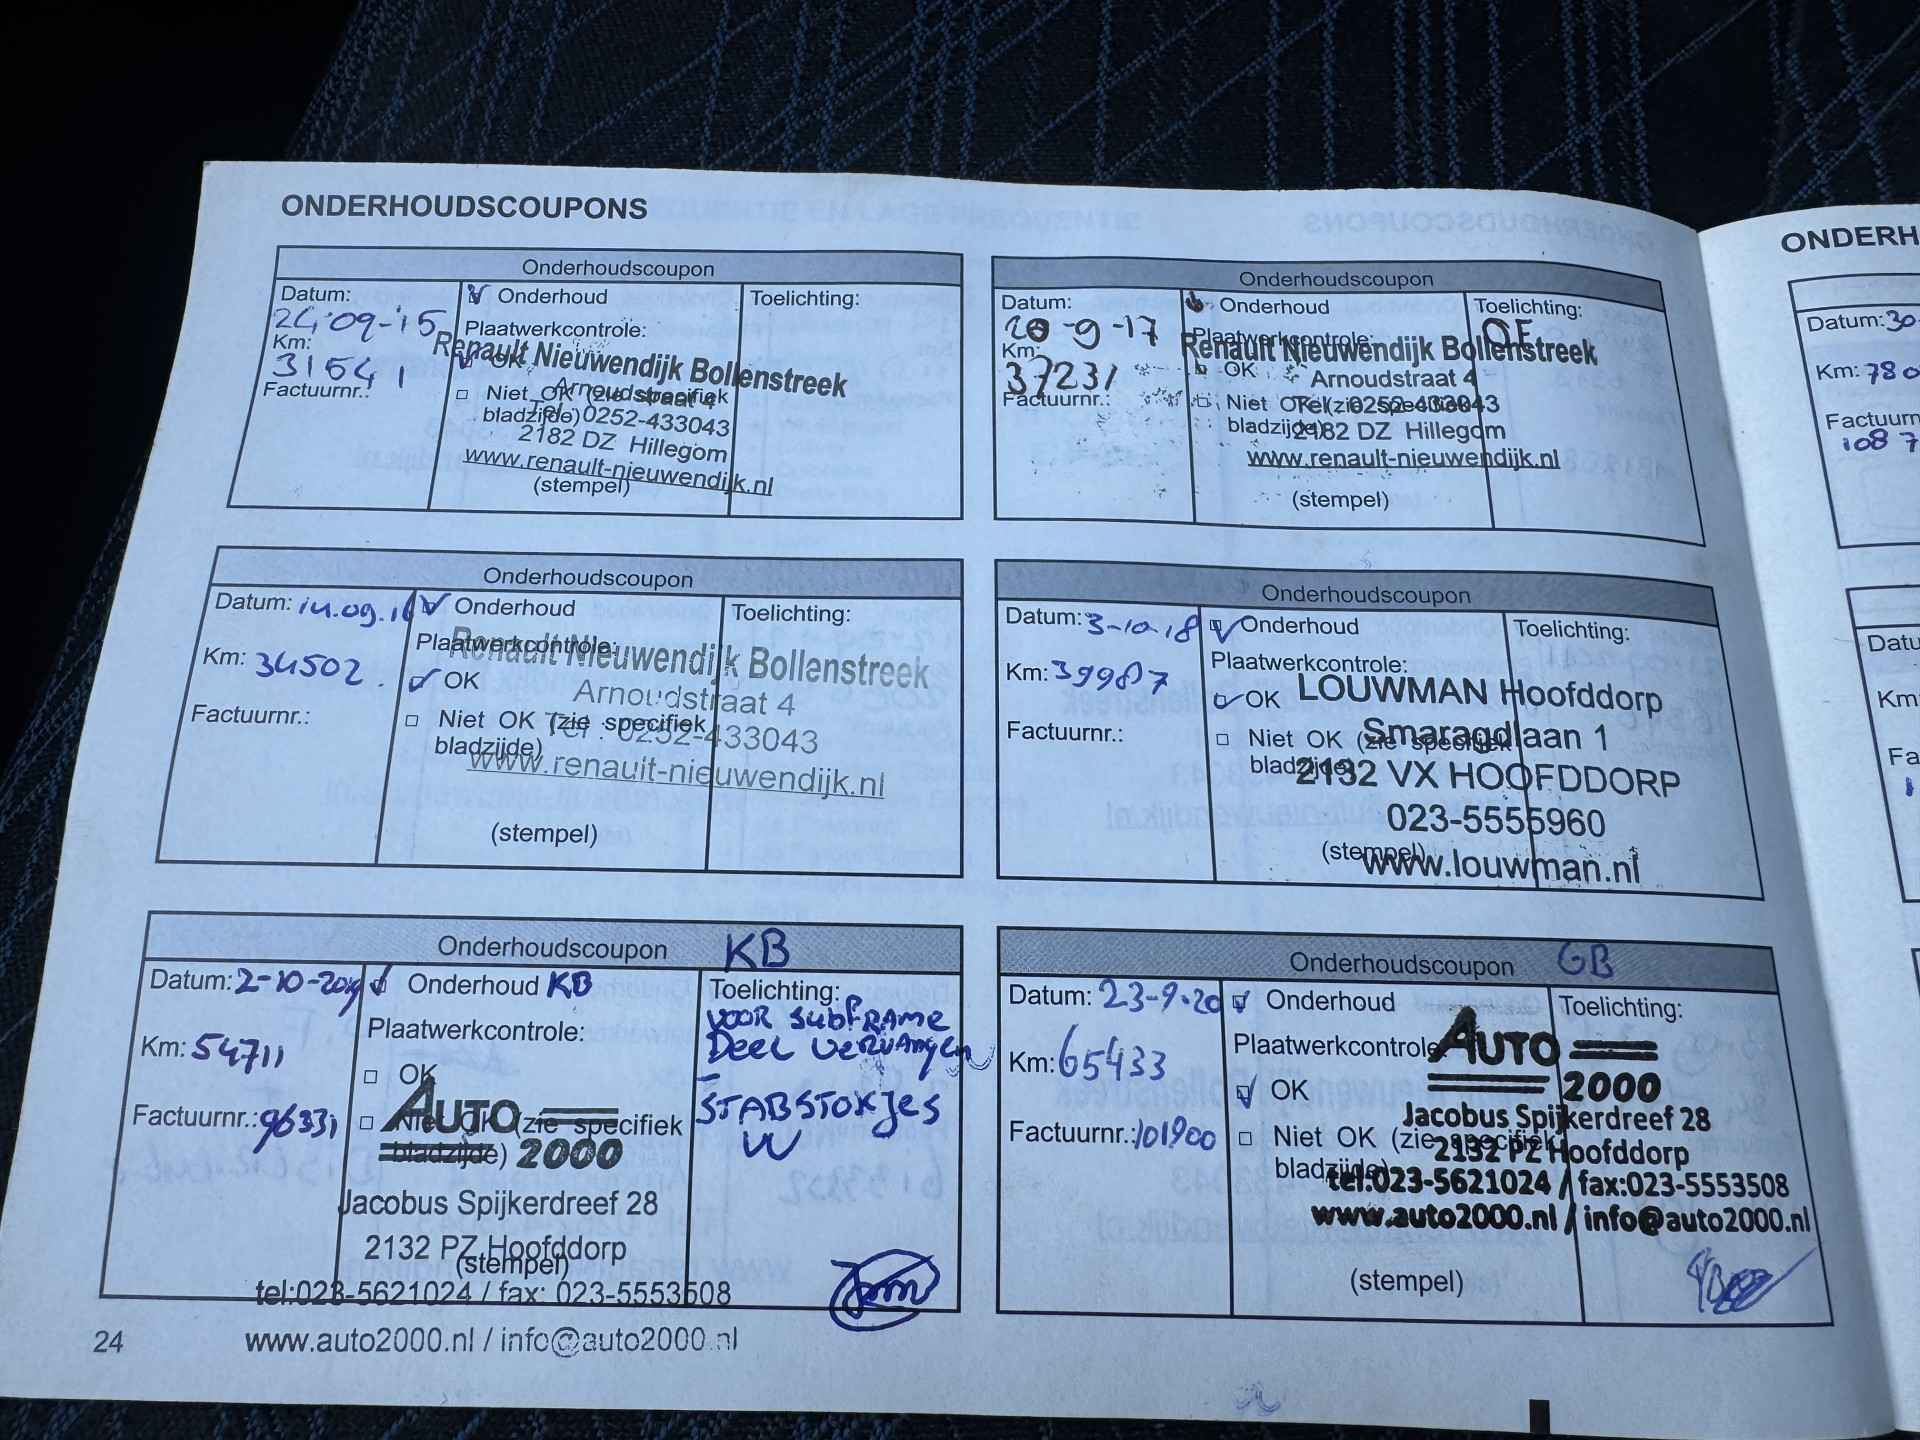 ONDERHOUDSCOUPONS
Onderhoudscoupon
Datum:
24-09-15
Km:
31541
Factuurnr.:
Onderhoud
Plaatwerkcontrole:
OK
Niet OK (zie specifiek
bladzijde)
(stempel)
Toelichting:
Renault Nieuwendijk Bollenstreek
Arnoudstraat 4
Tel. 0252-433043
2182 DZ Hillegom
www.renault-nieuwendijk.nl
Onderhoudscoupon
Datum:
20-9-17
Km:
37231
Factuurnr.:
Onderhoud
Plaatwerkcontrole:
OK
Niet OK (zie specifiek
bladzijde)
(stempel)
Toelichting:
OF
Renault Nieuwendijk Bollenstreek
Arnoudstraat 4
Tel. 0252-433043
2182 DZ Hillegom
www.renault-nieuwendijk.nl
Onderhoudscoupon
Datum: 14.09.16
Km: 34502.
Factuurnr.:
Onderhoud
Plaatwerkcontrole:
OK
Niet OK (zie specifiek
bladzijde)
(stempel)
Toelichting:
Renault Nieuwendijk Bollenstreek
Arnoudstraat 4
Tel.: 0252-433043
www.renault-nieuwendijk.nl
Onderhoudscoupon
Datum: 3-10-18
Km: 39987
Factuurnr.:
Onderhoud
Plaatwerkcontrole:
OK
Niet OK (zie specifiek
bladzijde)
(stempel)
Toelichting:
LOUWMAN Hoofddorp
Smaragdlaan 1
2132 VX HOOFDDORP
023-5555960
www.louwman.nl
Onderhoudscoupon KB
Datum: 2-10-2019
Km: 54711
Factuurnr.: 96331
Onderhoud KB
Plaatwerkcontrole:
OK
Niet OK (zie specifiek
bladzijde)
(stempel)
Toelichting:
VOOR SUBFRAME
Deel vervangen
- STABSTOKJES
VV
AUTO
2000
Jacobus Spijkerdreef 28
2132 PZ Hoofddorp
tel:023-5621024 / fax: 023-5553508
www.auto2000.nl / info@auto2000.nl
Onderhoudscoupon GB
Datum: 23-9-20
Km: 65433
Factuurnr.: 101900
Onderhoud
Plaatwerkcontrole:
OK
Niet OK (zie specifiek
bladzijde)
(stempel)
Toelichting:
AUTO
2000
Jacobus Spijkerdreef 28
2132 PZ Hoofddorp
tel:023-5621024 / fax:023-5553508
www.auto2000.nl / info@auto2000.nl
24
ONDERH
Datum: 30
Km: 780
Factuurn
108 7
Datu
Km:
Fa